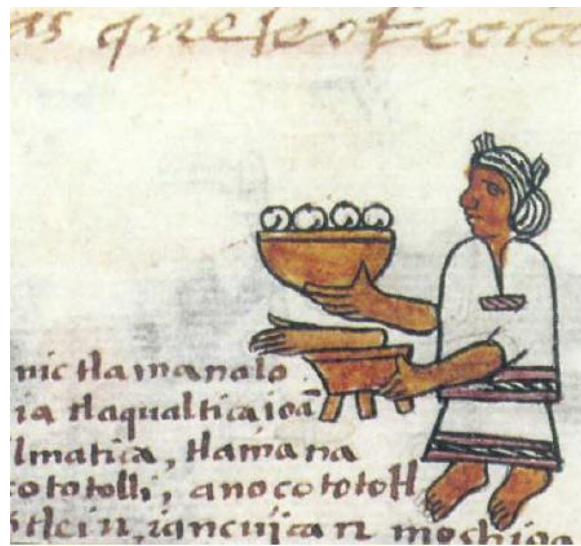 as que se ofrecia
nic tlamanalo
ia tlaqualtica ioã
lmatica, tlamana
cototolli, anocototoll
tlein, iancujican mochioa